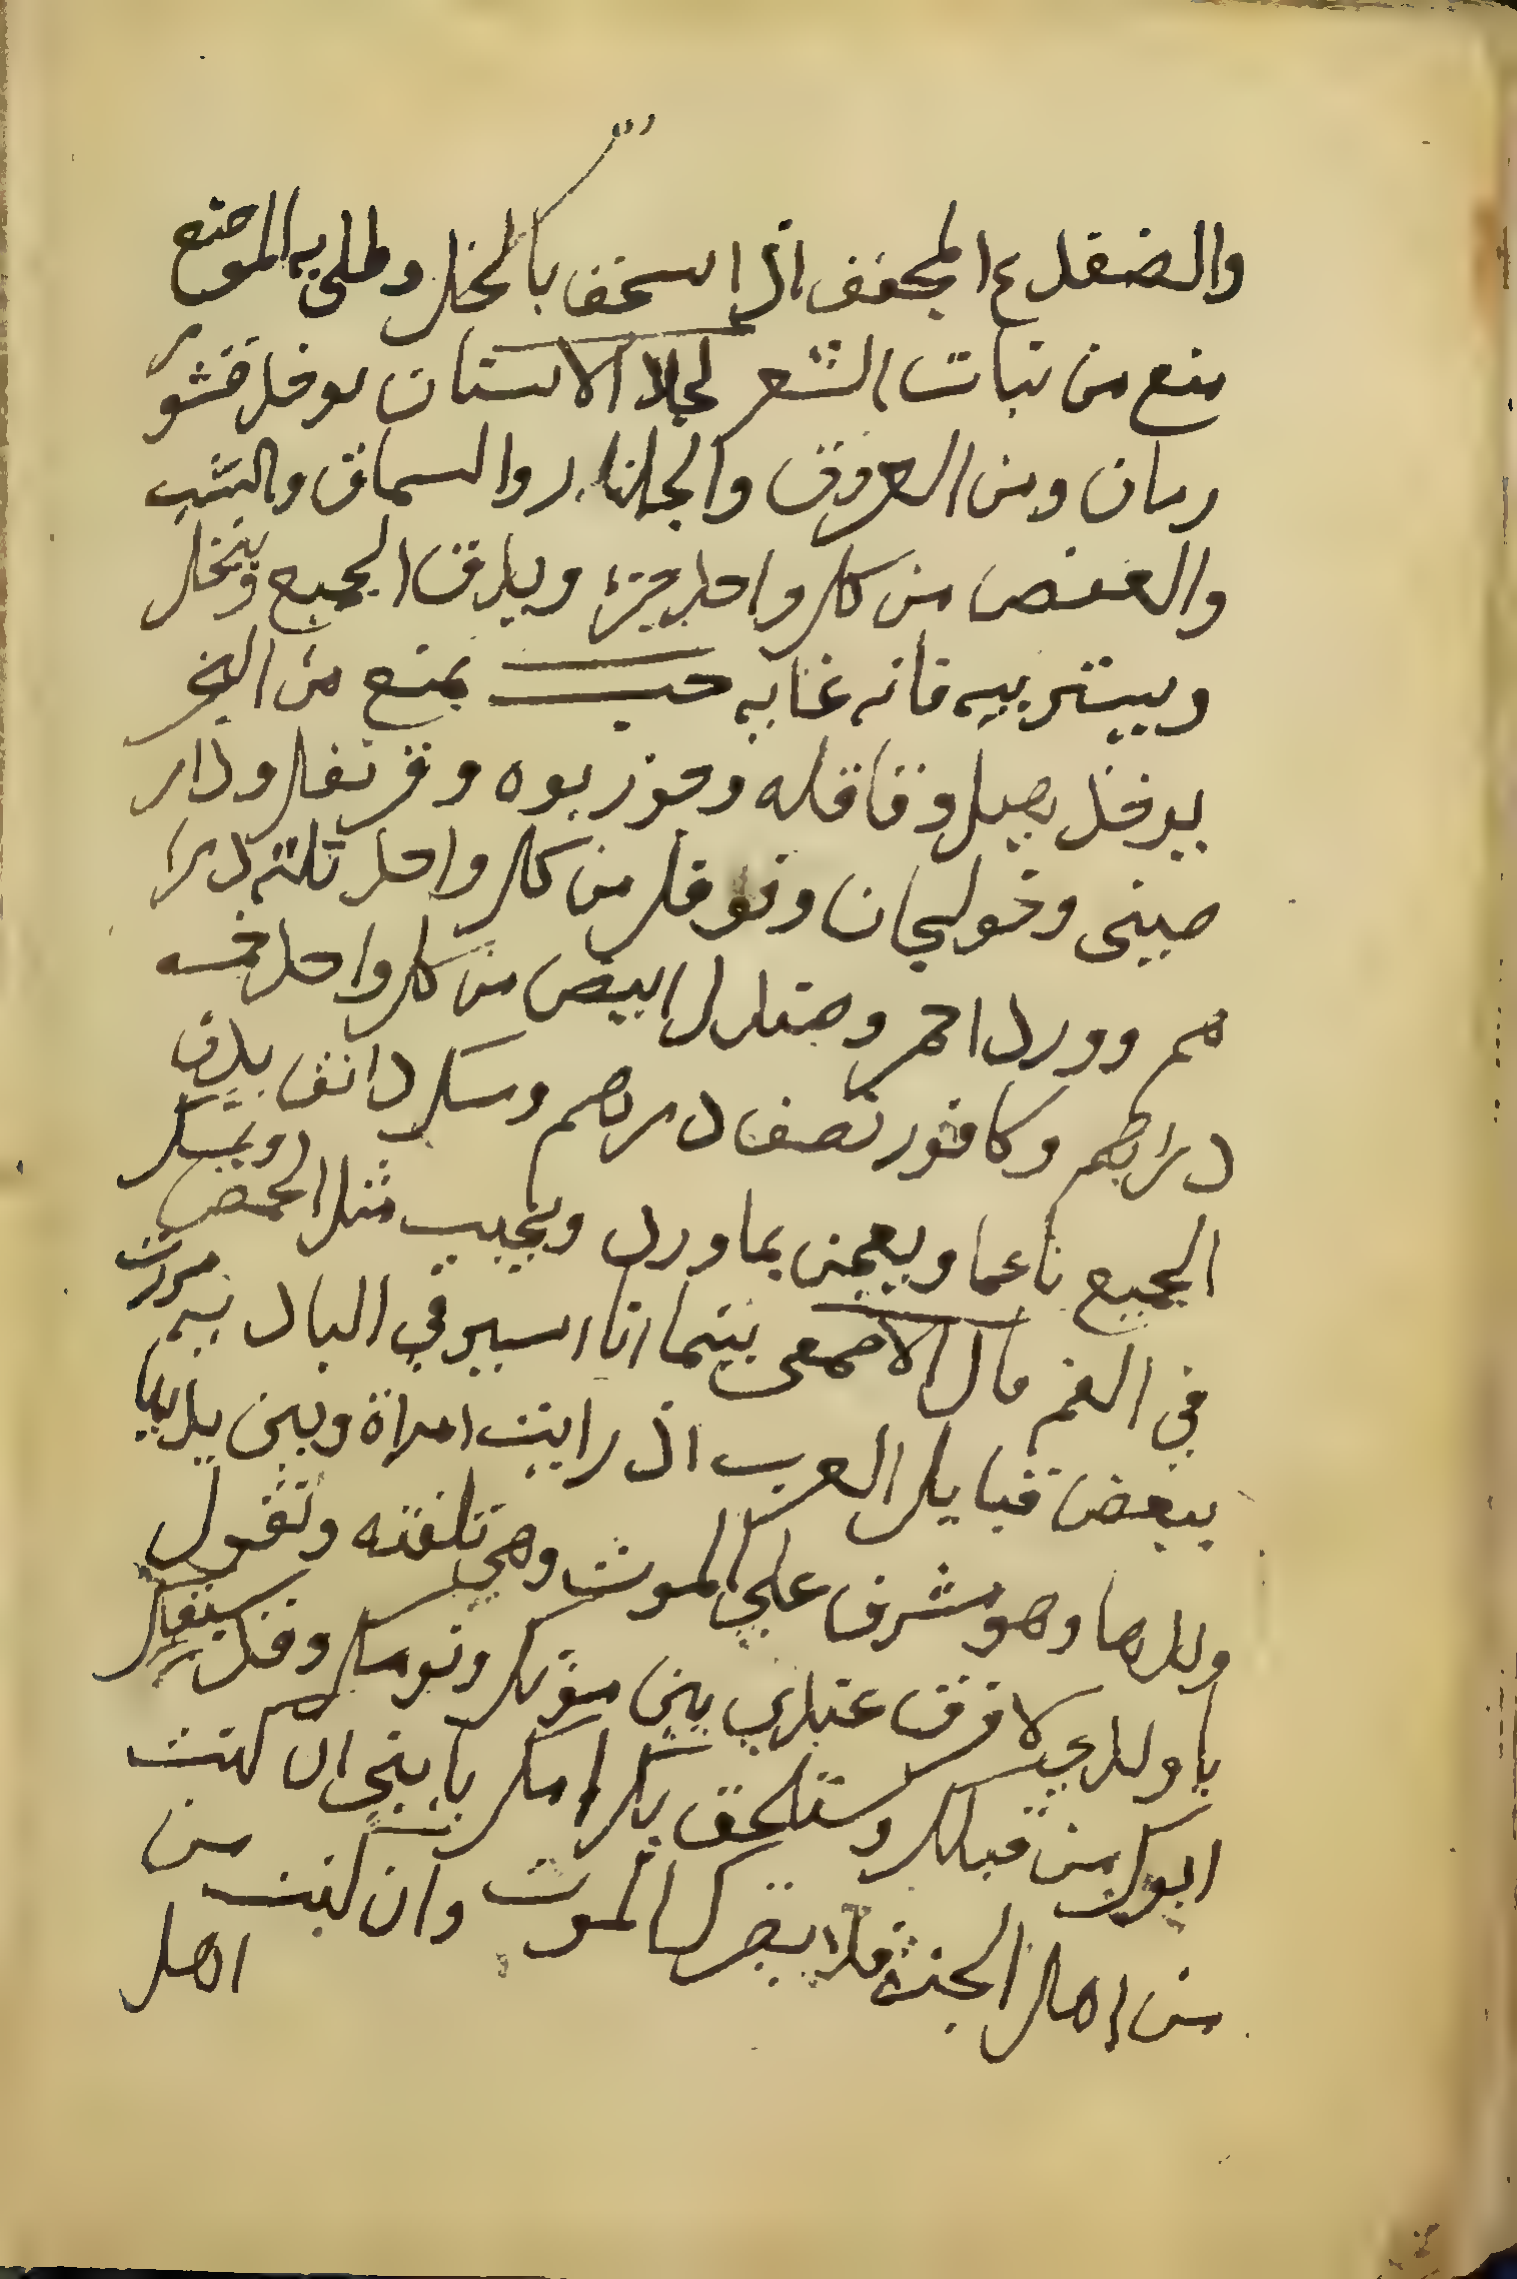 والضفدع المجفف اذا سحف بالخل وطلي به الموضع
منع من نبات الشعر لجلا الاسنان يوخذ قشور
رمان ومن العروق والجلنار والسماق والشب
والعفص من كل واحد جزء ويدق الجميع وينخل
ويستر بيه فانه غايه حب يمنع من البخر
يوخذ بصل وقاقله وجوز بوه وقرنفل ودار
صينى وخولنجان وفوفل من كل واحد ثلثه درا
هم وورد احمر وصندل ابيض من كل واحد خمسه
دراهم وكافور نصف درهم وسك دانق يدق
الجميع ناعما ويعجن بماورد ويحبب مثل الحمص ويمسك
في الفم قال الاصمعى بينما انا اسير في الباديه مررت
ببعض قبايل العرب اذ رايت امراة وبين يديها
ولدها وهو مشرف علي الموت وهي تلقنه وتقول
يا ولدي لا فرق عندي بين موتك ونومك وقد سبقك
ابوك من قبلك وستلحق بك امك يا بني ان كنت
من اهل الجنة فلا يضرك الموت وان كنت من
اهل